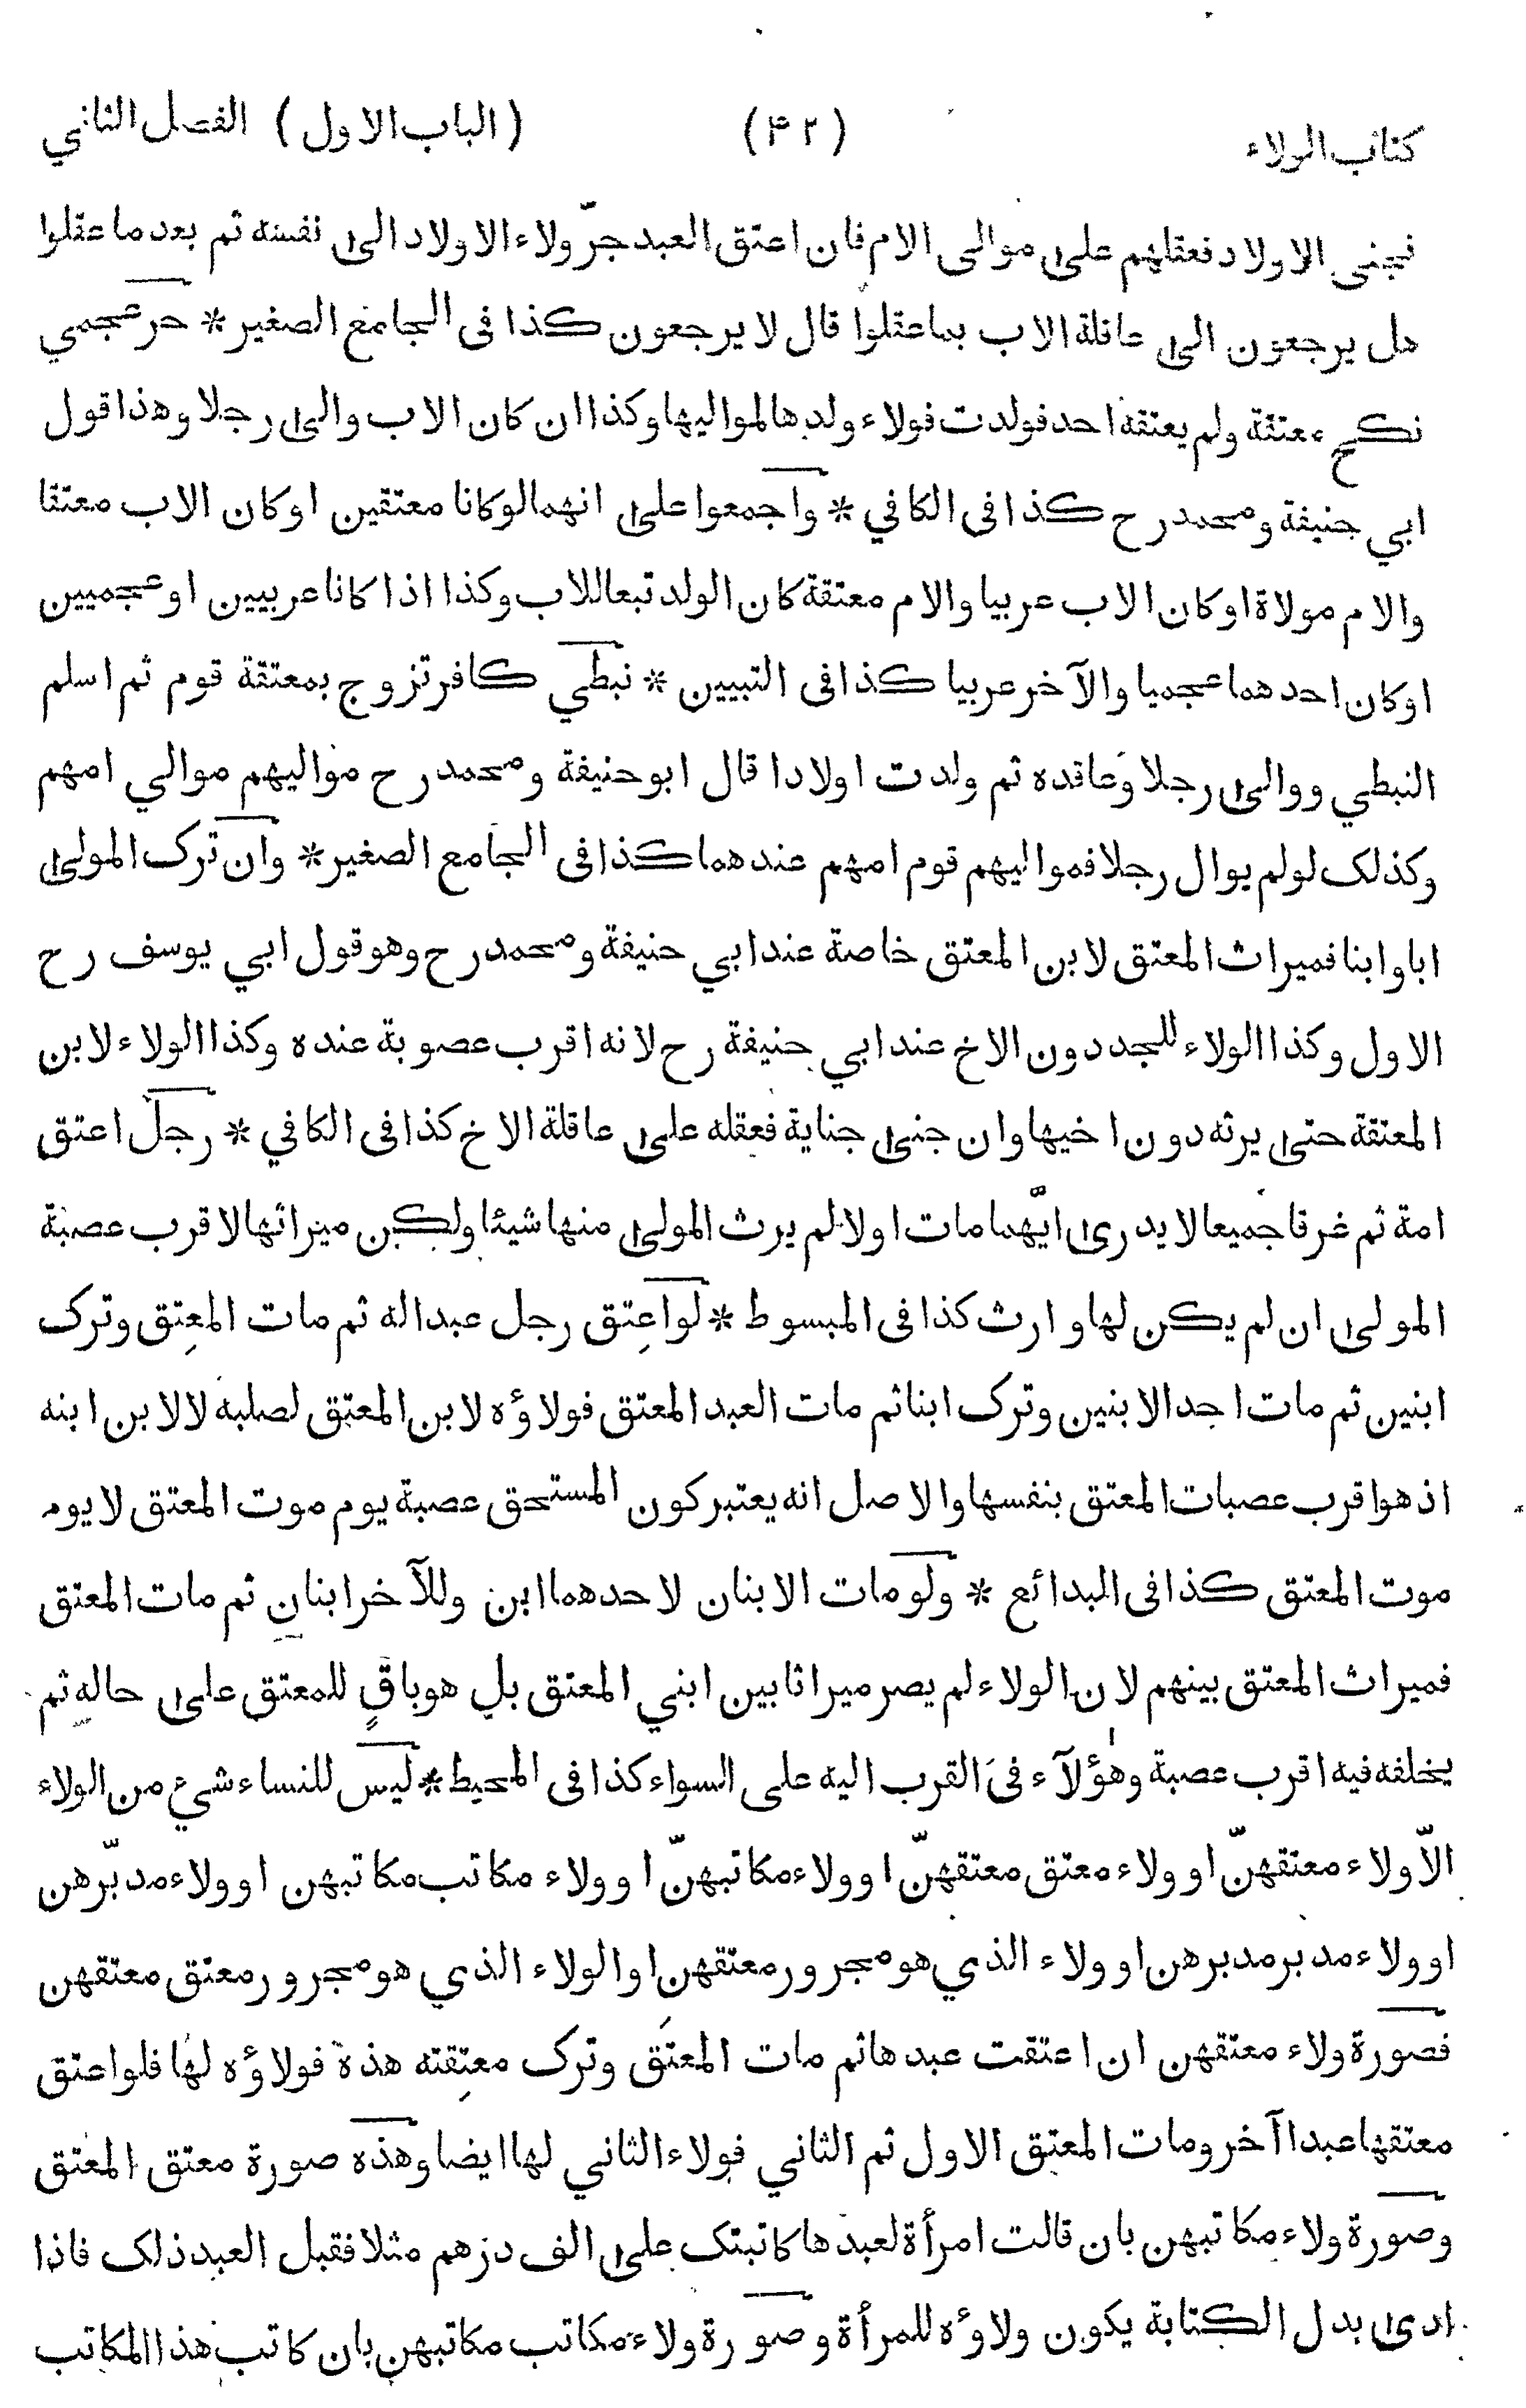 كتاب الولاء (۴۲) (الباب الاول) الفصل الثاني
فجنى الاولاد فعقلهم على موالى الام فان اعتق العبد جرّ ولاء الاولاد الى نفسه ثم بعد ما عقلوا
هل يرجعون الى عاقلة الاب بما عقلوا قال لا يرجعون كذا فى الجامع الصغير * حر عجمي
نكح معتقة ولم يعتقه احد فولدت فولاء ولدها لمواليها وكذا ان كان الاب والى رجلا وهذا قول
ابي حنيفة ومحمد رح كذا فى الكافي * واجمعوا على انهما لو كانا معتقين او كان الاب معتقا
والام مولاة او كان الاب عربيا والام معتقة كان الولد تبعا للاب وكذا اذا كانا عربيين او عجميين
او كان احدهما عجميا والآخر عربيا كذا فى التبيين * نبطي كافر تزوج بمعتقة قوم ثم اسلم
النبطي ووالى رجلا وعاقده ثم ولدت اولادا قال ابو حنيفة ومحمد رح مواليهم موالي امهم
وكذلك لو لم يوال رجلا فمواليهم قوم امهم عندهما كذا فى الجامع الصغير * وان ترك المولى
ابا وابنا فميراث المعتق لابن المعتق خاصة عند ابي حنيفة ومحمد رح وهو قول ابي يوسف رح
الاول وكذا الولاء للجد دون الاخ عند ابي حنيفة رح لانه اقرب عصوبة عنده وكذا الولاء لابن
المعتقة حتى يرثه دون اخيها وان جنى جناية فعقله على عاقلة الاخ كذا فى الكافي * رجل اعتق
امة ثم غرقا جميعا لا يدرى ايّهما مات اولا لم يرث المولى منها شيئا ولكن ميراثها لاقرب عصبة
المولى ان لم يكن لها وارث كذا فى المبسوط * لو اعتق رجل عبدا له ثم مات المعتِق وترك
ابنين ثم مات احد الابنين وترك ابنا ثم مات العبد المعتق فولاؤه لابن المعتِق لصلبه لا لابن ابنه
اذ هو اقرب عصبات المعتق بنفسها والاصل انه يعتبر كون المستحق عصبة يوم موت المعتق لا يوم
موت المعتِق كذا فى البدائع * ولو مات الابنان لاحدهما ابن وللآخر ابنان ثم مات المعتق
فميراث المعتق بينهم لان الولاء لم يصر ميراثا بين ابني المعتق بل هو باقٍ للمعتق على حاله ثم
يخلفه فيه اقرب عصبة وهؤلآء فى القرب اليه على السواء كذا فى المحيط * ليس للنساء شيء من الولاء
الّا ولاء معتقهنّ او ولاء معتق معتقهنّ او ولاء مكاتبهنّ او ولاء مكاتب مكاتبهن او ولاء مدبّرهن
او ولاء مدبر مدبرهن او ولاء الذي هو مجرور معتقهن او الولاء الذي هو مجرور معتق معتقهن
فصورة ولاء معتقهن ان اعتقت عبدها ثم مات المعتَق وترك معتِقته هذه فولاؤه لها فلو اعتق
معتقها عبدا آخر ومات المعتق الاول ثم الثاني فولاء الثاني لها ايضا وهذه صورة معتق المعتق
وصورة ولاء مكاتبهن بان قالت امرأة لعبدها كاتبتك على الف درهم مثلا فقبل العبد ذلك فاذا
ادى بدل الكتابة يكون ولاؤه للمرأة وصورة ولاء مكاتب مكاتبهن بان كاتب هذا المكاتب